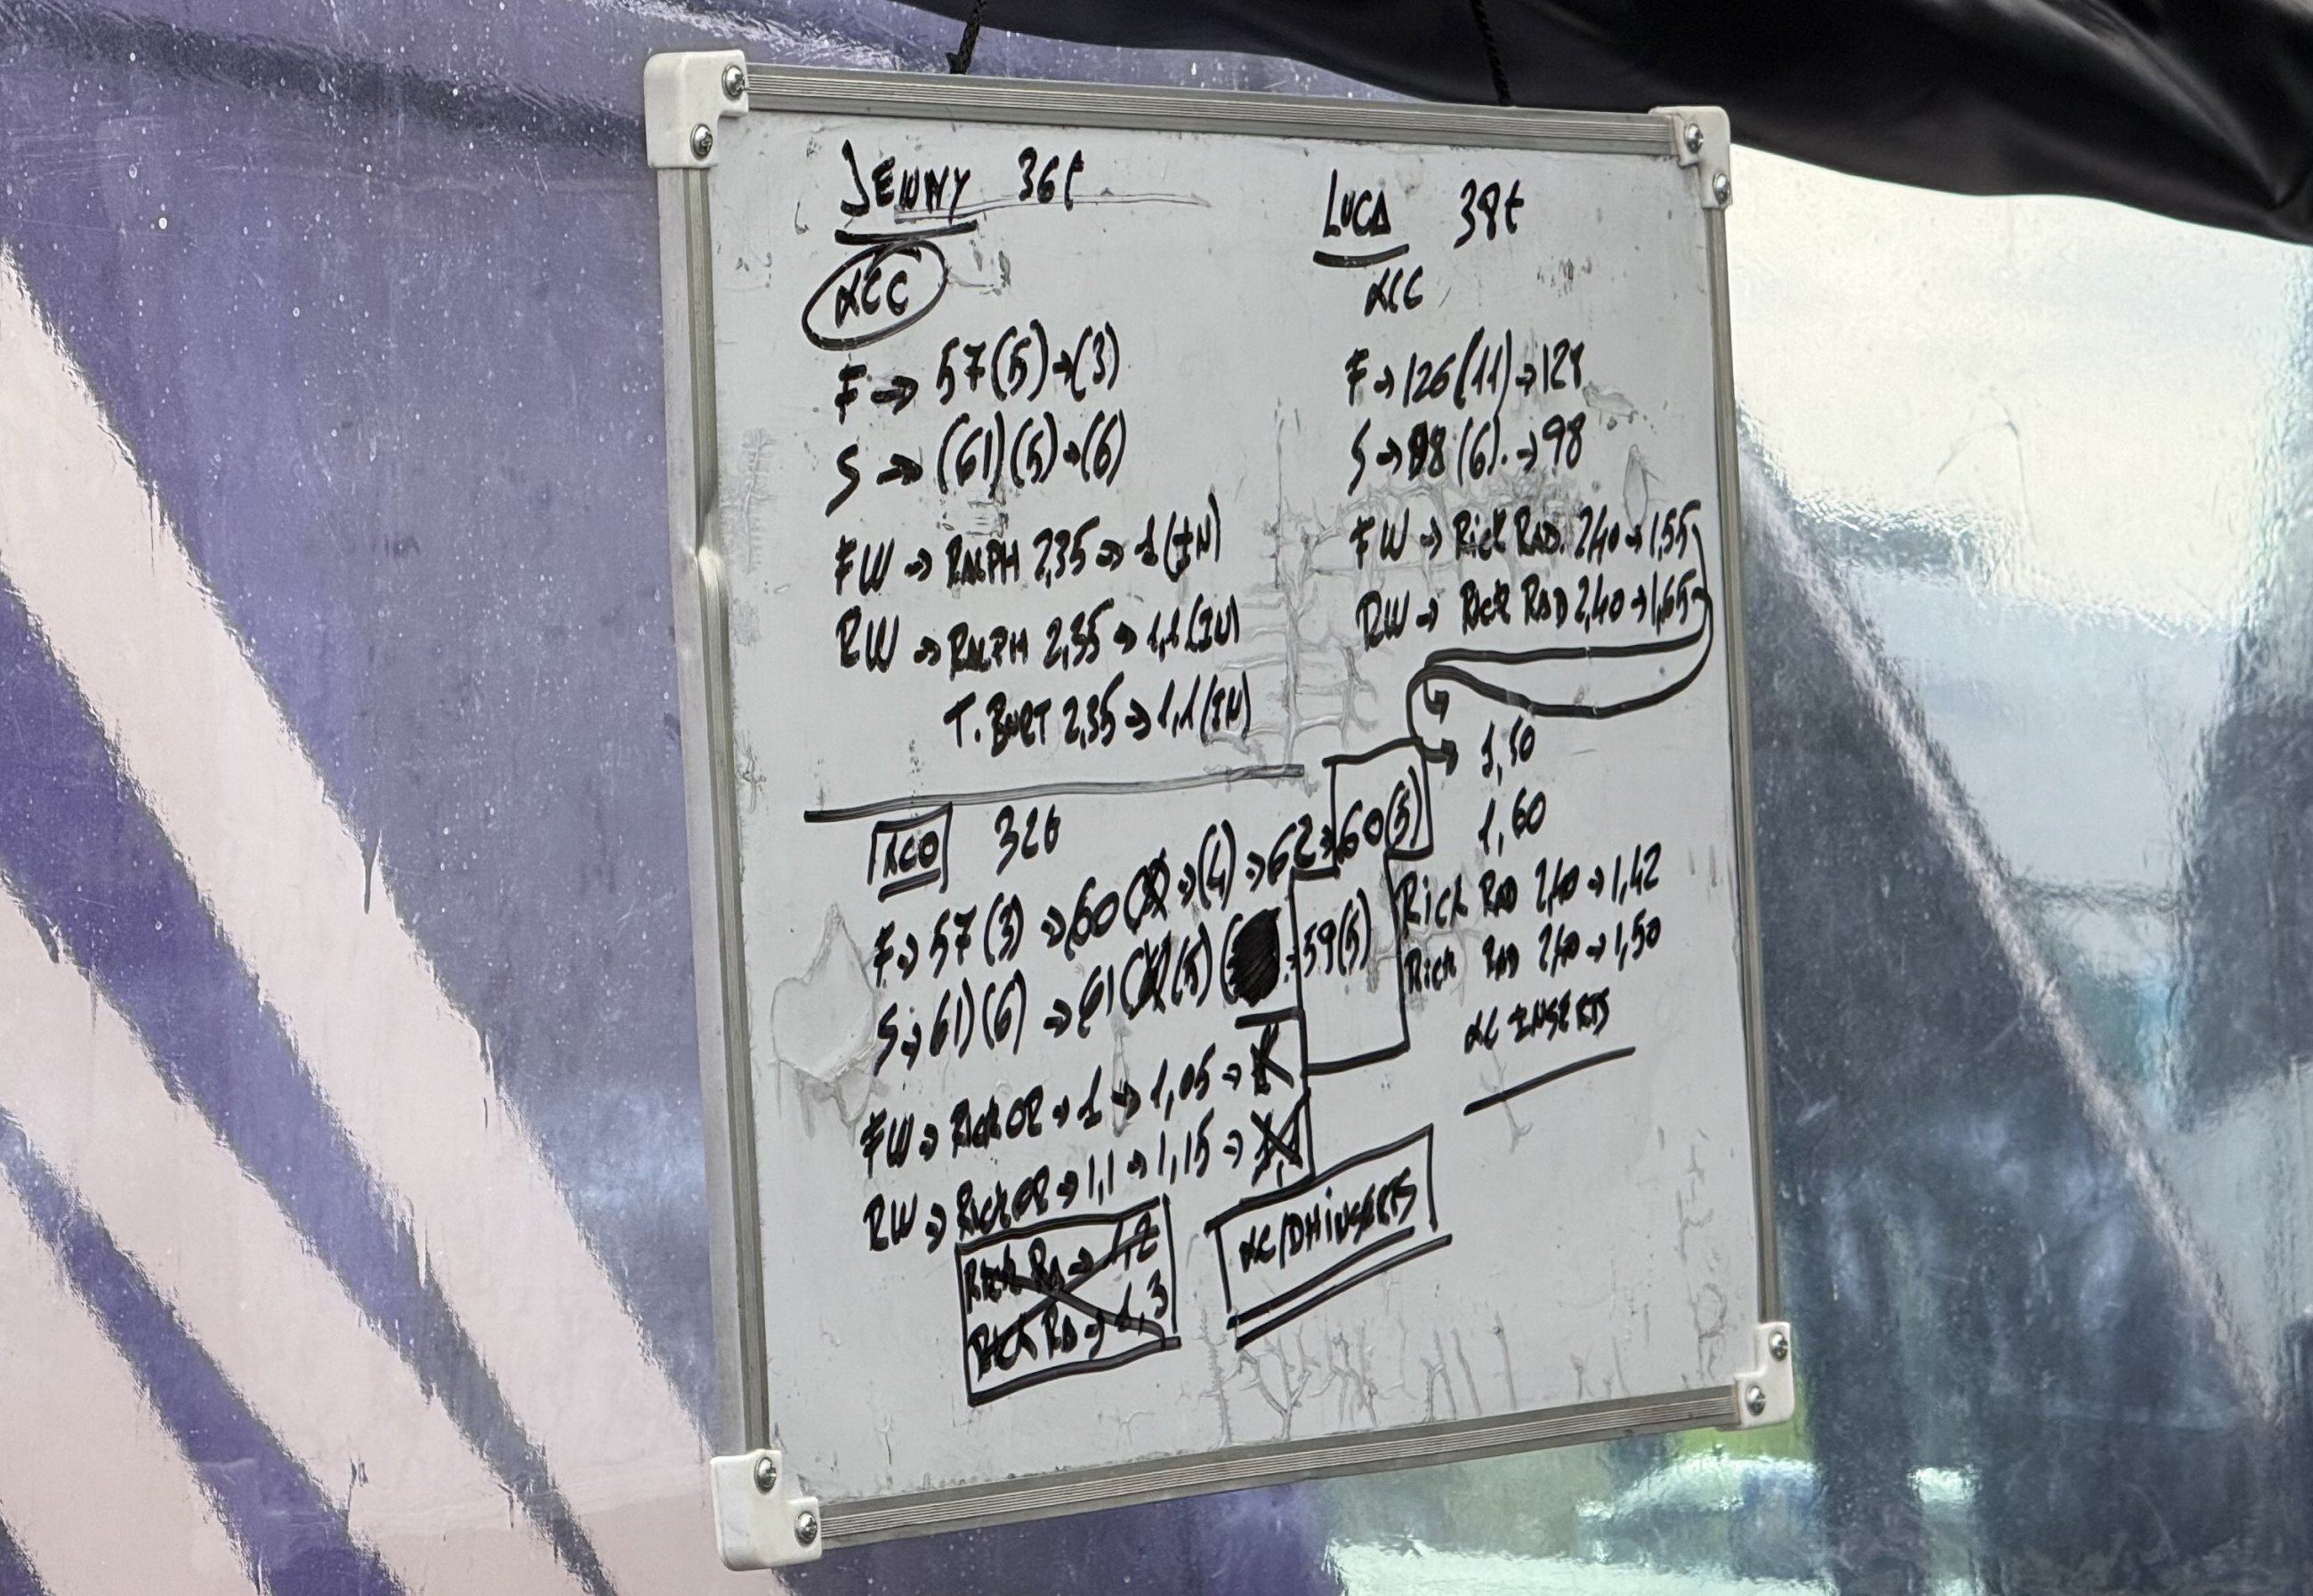 JENNY 36t
XCC
F → 57(5) → (3)
S → (61)(5) → (6)
FW → RALPH 2,35 → 1 (IN)
RW → RALPH 2,35 → 1,1 (IN)
T. BURT 2,35 → 1,1 (IN)
XCO 32t
F → 57(3) → 60 → (4) → 62 → 60(5)
S → 61)(6) → 61 (5) 59(5)
FW → RICK OR → 1 → 1,05 →
RW → RICK OR → 1,1 → 1,15 →
RICK RA → 1,2
RICK RA → 1,3
XC/DH INSERTS
LUCA 38t
XCC
F → 126(11) → 128
S → 98(6). → 98
FW → RICK RAD. 2,40 → 1,55
RW → RICK RAD 2,40 → 1,65
→ 1,50
1,60
RICK RAD 2,40 → 1,42
RICK RAD 2,40 → 1,50
XC INSERTS